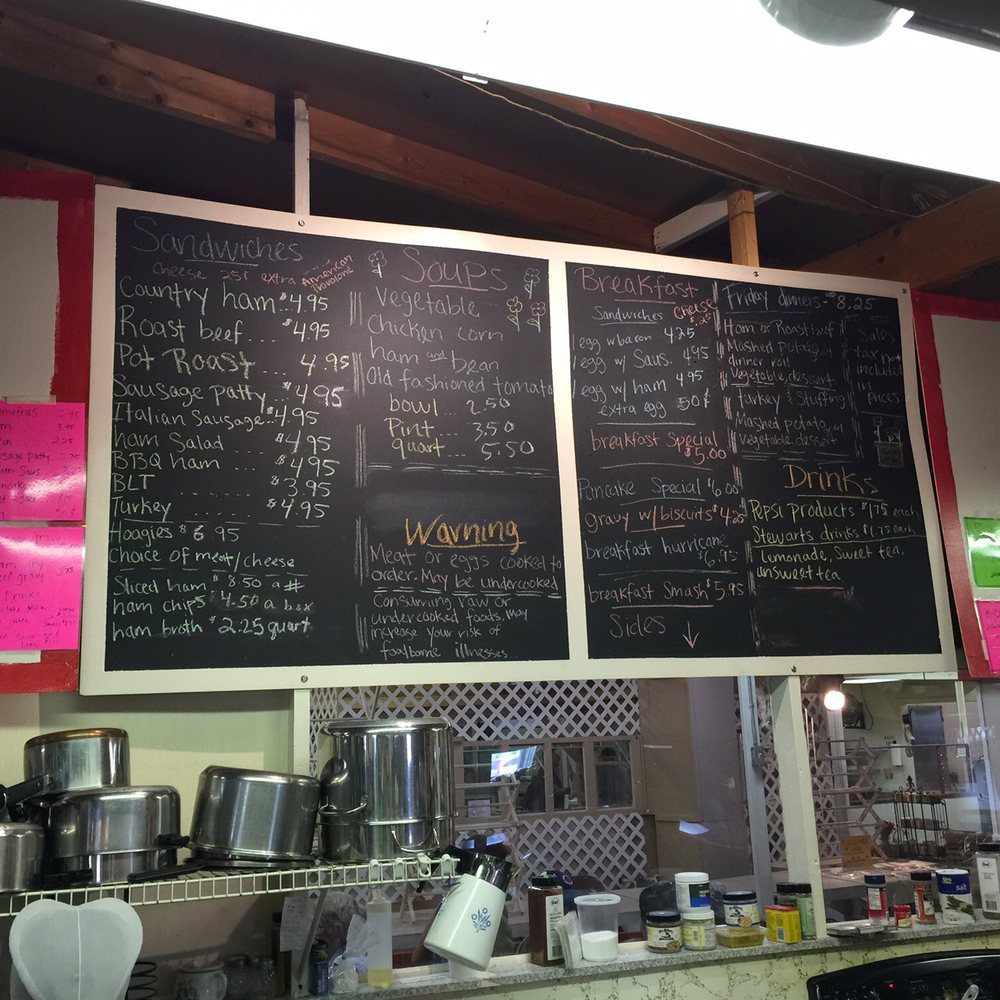 Sandwiches
cheese 25¢ extra American
Provolone
Country ham $4.95
Roast beef .... $4.95
Pot Roast .... 4.95
Sausage patty.. $4.95
Italian Sausage..$4.95
ham Salad $4.95
BBQ ham $4.95
BLT ........ $3.95
Turkey ........ $4.95
Hoagies $6.95
Choice of meat/cheese
Sliced ham $8.50 a #
ham chips $4.50 a box
ham broth $2.25 quart
Soups
Vegetable
chicken corn
ham and bean
Old fashioned tomato
bowl... 2.50
Pint.... 3.50
quart.... 5.50
Warning
Meat or eggs cooked to
order. May be undercooked
Consuming raw or
undercooked foods, may
increase your risk of
foodborne illnesses
Breakfast
Sandwiches Cheese
$.25
1 egg w/bacon 4.25
1 egg w/ Saus. 4.95
1 egg w/ ham 4.95
extra egg 50¢
breakfast Special
$5.00
Pancake Special $6.00
gravy w/biscuits $4.25
breakfast hurricane
$6.95
breakfast Smash $5.95
Sides ↓
Friday dinners - $8.25
Ham or Roast beef
Mashed potato gravy
dinner roll
Vegetable, dessert
turkey & Stuffing
Mashed potato gravy
Vegetable dessert
Sales
tax not
included
in
prices
Drinks
Pepsi products $1.75 each
Stewarts drinks $1.75 each
Lemonade, Sweet tea,
unsweet tea
Salt